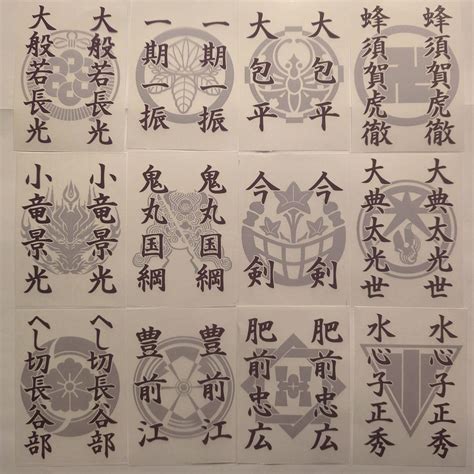 大般若長光
大般若長光
一期一振
一期一振
大包平
大包平
蜂須賀虎徹
蜂須賀虎徹
小竜景光
小竜景光
鬼丸国綱
鬼丸国綱
今剣
今剣
大典太光世
大典太光世
へし切長谷部
へし切長谷部
豊前江
豊前江
肥前忠広
肥前忠広
水心子正秀
水心子正秀